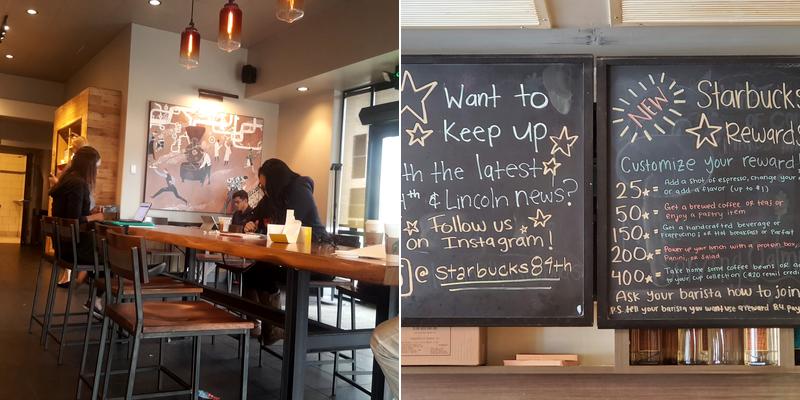 Want to
Keep up
th the latest
4th & Lincoln news?
Follow us
on Instagram!
@ starbucks84th
NEW
Starbucks
Rewards
Customize your reward!
25★ = Add a shot of espresso, change your
or add a flavor (up to $1)
50★ = Get a brewed coffee or tea, or
enjoy a pastry item
150★ = Get a handcrafted beverage or
Frappuccino, or Hot breakfast or Parfait
200★ = Power up your lunch with a protein box,
Panini, or Salad
400★ = Take home some coffee beans or ad
to your cup collection ($20 retail credi
Ask your barista how to join
P.S. tell your barista you want use a reward B4 pay